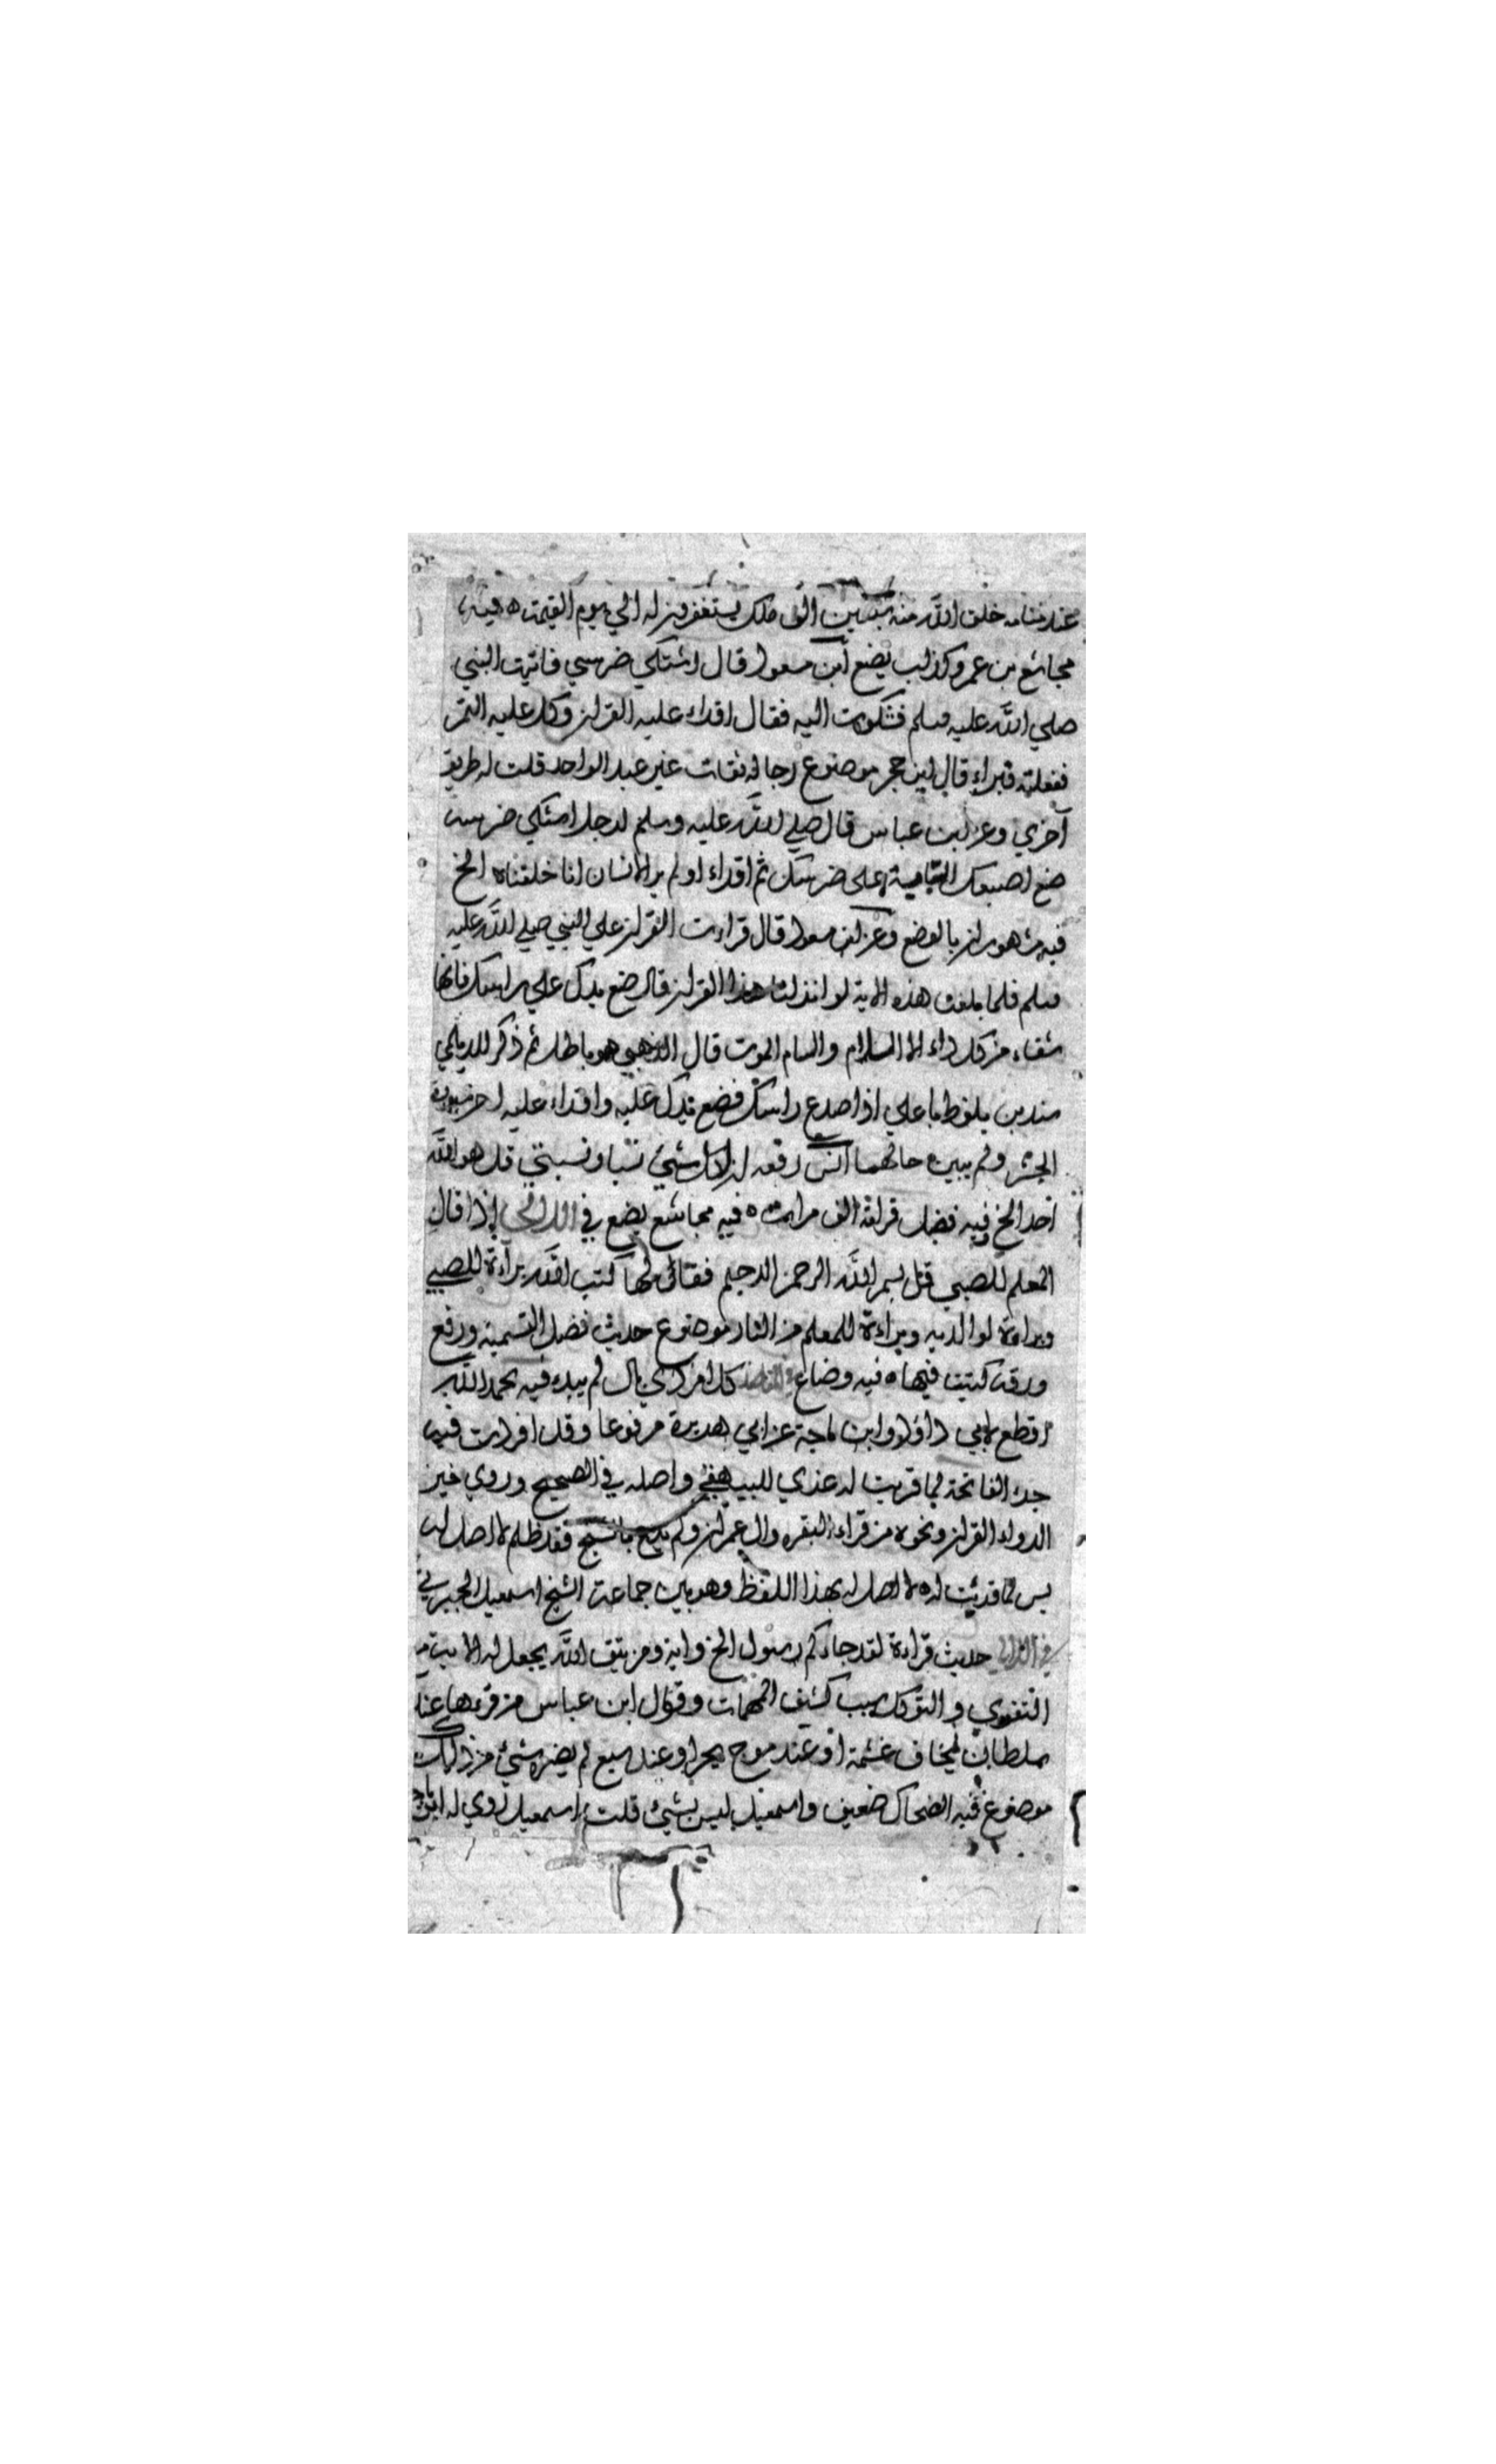 عند منامه خلق الله منه سبعين الف ملك يستغفرون له الي يوم القيمة ه فيه
مجاشع بن عمرو كذاب يضع ابن مسعود قال اشتكي ضرسي فاتيت النبي
صلي الله عليه وسلم فشكوت اليه فقال اقراء عليه القران وكل عليه التمر
ففعلته فبراء قال ابن حجر موضوع رجاله ثقات غير عبد الواحد قلت له طريق
آخري وعن ابن عباس قال صلي الله عليه وسلم لرجل اشتكي ضرسه
ضع اصبعك السبابة علي ضرسك ثم اقراء اولم ير الانسان انا خلقناه الخ
فيه مشهوران بالوضع وعن ابن مسعود قال قراءت القران علي النبي صلي الله عليه
وسلم فلما بلغت هذه الاية لو انزلنا هذا القران قال ضع يدك علي راسك فانها
شفاء من كل داء الا السام والسام الموت قال الذهبي هو باطل ثم ذكر للديلمي
سندين بلفظ يا علي اذا صدع راسك فضع يدك عليه واقراء عليه اخر سورة
الحشر ولم يبين حالهما انس رفعه ان لكل شيئ نسبا ونسبتي قل هو الله
احد الخ فيه فضل قراءة الف مرات ه فيه مجاشع يضع في اللالي اذا قال
المعلم للصبي قل بسم الله الرحمن الرحيم فقالها كتب الله براءة للصبي
وبراءة لوالديه وبراءة للمعلم من النار موضوع حديث فضل التسمية ورفع
ورقة كتبت فيها ه فيه وضاع كل امر ذي بال لم يبدء فيه بحمد الله
اقطع لابي داؤد وابن ماجة عن ابي هريرة مرفوعا وقد افردت فيه
جزء الفاتحة لما قريت له عزي للبيهقي واصله في الصحيح وروي خير
الدواء القران ونحوه من قراء البقره وال عمران ولم يدع بالشيخ فقد ظلم لا اصل له
يس لما قرئت له ه لا اصل له بهذا اللفظ وهو بين جماعة الشيخ اسمعيل الجبرتي
في اللالي حديث قراءة لقد جاءكم رسول الخ واية ومن يتق الله يجعل له الاية
التقوي والتوكل سبب كشف المهمات وقول ابن عباس من قرءها عند
سلطان يخاف غشمه او عند موج بحر او عند سبع لم يضره شيئ من ذلك
موضوع فيه الضحاك ضعيف واسمعيل ليس بشيئ قلت اسمعيل روي له ابن